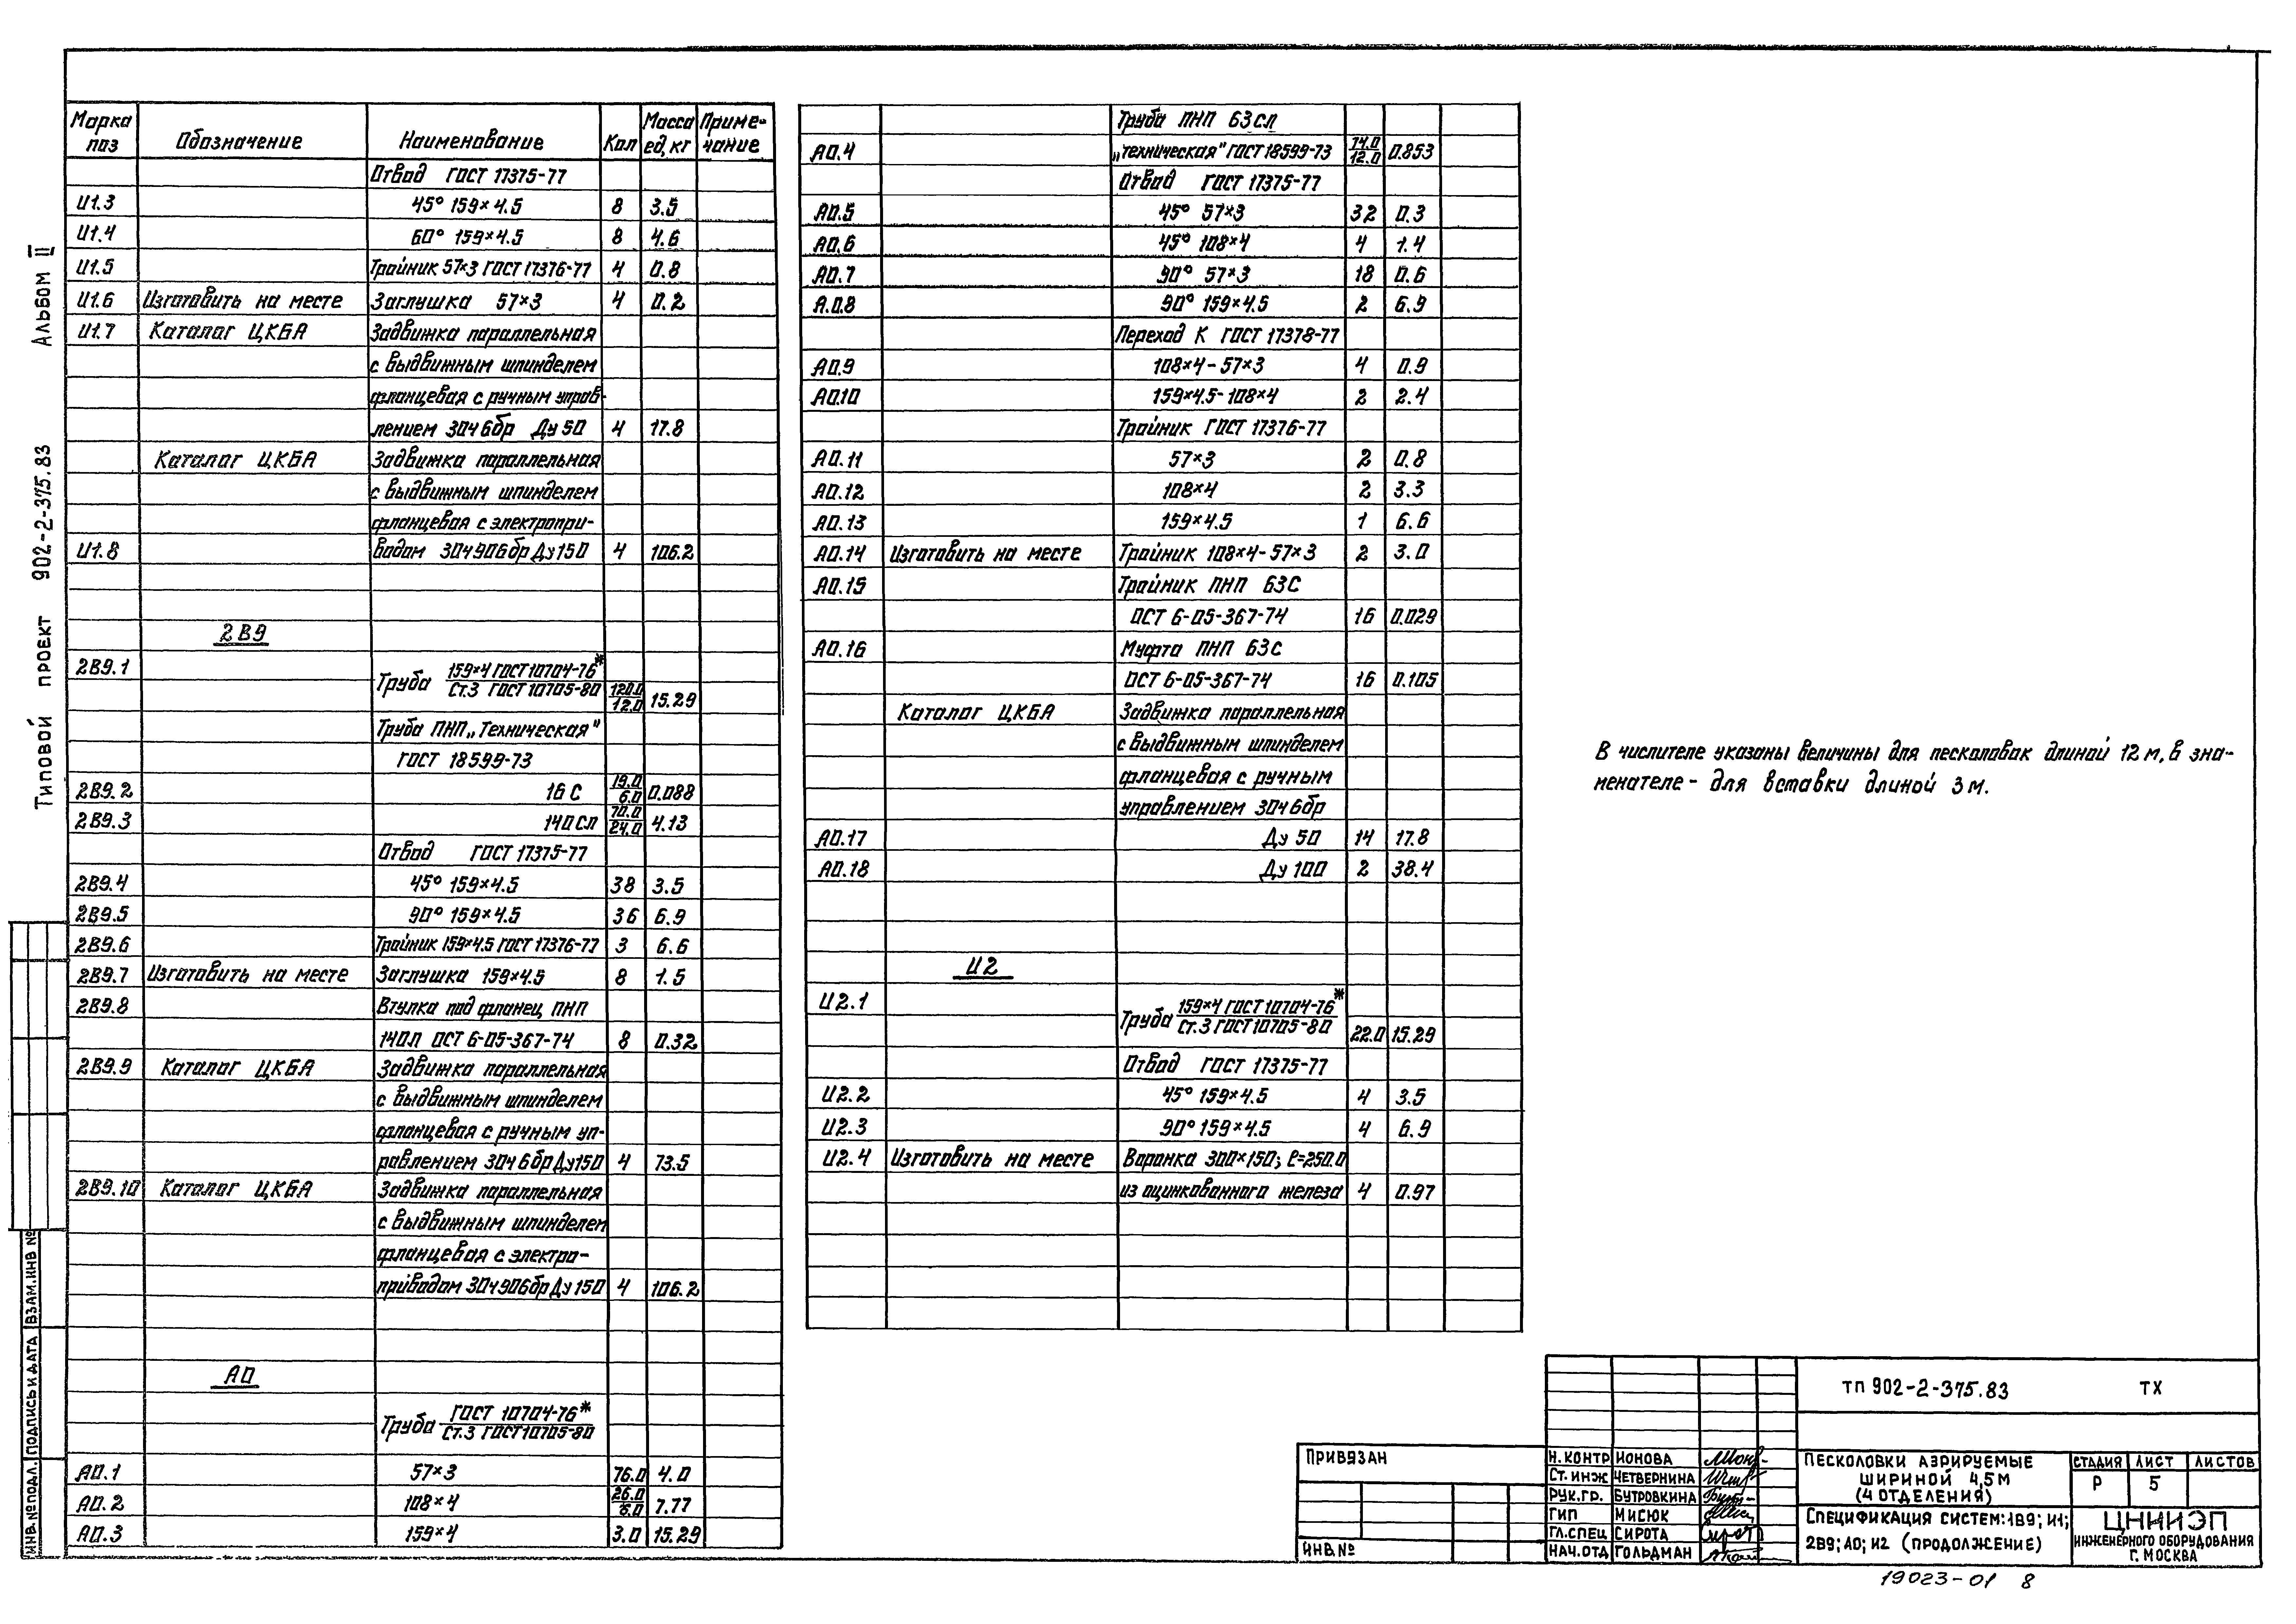 Альбом II
Типовой проект 902-2-375.83
Марка поз | Обозначение | Наименование | Кол | Масса ед, кг | Примечание
Отвод ГОСТ 17375-77
И1.3 45° 159×4.5 8 3.5
И1.4 60° 159×4.5 8 4.6
И1.5 Тройник 57×3 ГОСТ 17376-77 4 0.8
И1.6 Изготовить на месте Заглушка 57×3 4 0.2
И1.7 Каталог ЦКБА Задвижка параллельная
с выдвижным шпинделем
фланцевая с ручным управ-
лением 30ч6бр Ду 50 4 17.8
Каталог ЦКБА Задвижка параллельная
с выдвижным шпинделем
фланцевая с электропри-
И1.8 водом 30ч906бр Ду150 4 106.2
2В9
2В9.1 Труба 159×4 ГОСТ 10704-76*
Ст.3 ГОСТ 10705-80 120.0/12.0 15.29
Труба ПНП „Техническая"
ГОСТ 18599-73
2В9.2 16 С 19.0/6.0 0.088
2В9.3 140СЛ 70.0/24.0 4.13
Отвод ГОСТ 17375-77
2В9.4 45° 159×4.5 38 3.5
2В9.5 90° 159×4.5 36 6.9
2В9.6 Тройник 159×4.5 ГОСТ 17376-77 3 6.6
2В9.7 Изготовить на месте Заглушка 159×4.5 8 1.5
2В9.8 Втулка под фланец ПНП
140Л ОСТ 6-05-367-74 8 0.32
2В9.9 Каталог ЦКБА Задвижка параллельная
с выдвижным шпинделем
фланцевая с ручным уп-
равлением 30ч6бр Ду150 4 73.5
2В9.10 Каталог ЦКБА Задвижка параллельная
с выдвижным шпинделем
фланцевая с электро-
приводом 30ч906бр Ду 150 4 106.2
АО
Труба ГОСТ 10704-76*
Ст.3 ГОСТ 10705-80
АО.1 57×3 76.0 4.0
АО.2 108×4 26.0/6.0 7.77
АО.3 159×4 3.0 15.29
Труба ПНП 63СЛ
АО.4 „техническая" ГОСТ 18599-73 74.0/12.0 0.853
Отвод ГОСТ 17375-77
АО.5 45° 57×3 32 0.3
АО.6 45° 108×4 4 1.4
АО.7 90° 57×3 18 0.6
А.О.8 90° 159×4.5 2 6.9
Переход К ГОСТ 17378-77
АО.9 108×4-57×3 4 0.9
АО.10 159×4.5-108×4 2 2.4
Тройник ГОСТ 17376-77
АО.11 57×3 2 0.8
АО.12 108×4 2 3.3
АО.13 159×4.5 1 6.6
АО.14 Изготовить на месте Тройник 108×4-57×3 2 3.0
АО.15 Тройник ПНП 63С
ОСТ 6-05-367-74 16 0.029
АО.16 Муфта ПНП 63С
ОСТ 6-05-367-74 16 0.105
Каталог ЦКБА Задвижка параллельная
с выдвижным шпинделем
фланцевая с ручным
управлением 30ч6бр
АО.17 Ду 50 14 17.8
АО.18 Ду 100 2 38.4
И2
И2.1 Труба 159×4 ГОСТ 10704-76*
Ст.3 ГОСТ 10705-80 22.0 15.29
Отвод ГОСТ 17375-77
И2.2 45° 159×4.5 4 3.5
И2.3 90° 159×4.5 4 6.9
И2.4 Изготовить на месте Воронка 300×150; ℓ=250.0
из оцинкованного железа 4 0.97
В числителе указаны величины для песколовок длиной 12 м, в зна-
менателе - для вставки длиной 3 м.
ИНВ.№ ПОДЛ. ПОДПИСЬ И ДАТА ВЗАМ.ИНВ №
ПРИВЯЗАН
ИНВ.№
Н.КОНТР ИОНОВА
СТ.ИНЖ ЧЕТВЕРНИНА
РУК.ГР. БУТРОВКИНА
ГИП МИСЮК
ГЛ.СПЕЦ СИРОТА
НАЧ.ОТД ГОЛЬДМАН
ТП 902-2-375.83 ТХ
ПЕСКОЛОВКИ АЭРИРУЕМЫЕ
ШИРИНОЙ 4,5М
(4 ОТДЕЛЕНИЯ)
СТАДИЯ ЛИСТ ЛИСТОВ
Р 5
СПЕЦИФИКАЦИЯ СИСТЕМ: 1В9; И1;
2В9; АО; И2 (ПРОДОЛЖЕНИЕ)
ЦНИИЭП
ИНЖЕНЕРНОГО ОБОРУДОВАНИЯ
Г. МОСКВА
19023-01 8